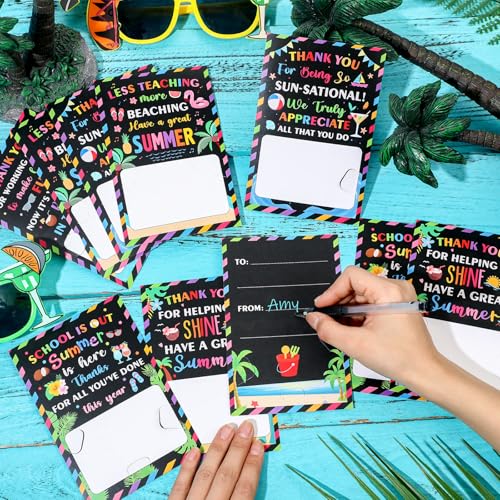 THANK YOU
FOR WORKING
to make
LESS
IT'S
FLY
NOW IT'S
THANK YOU
SUN-
LESS TEACHING
more
BEACHING
Have a great
SUMMER
THANK YOU
For Being So
SUN-SATIONAL!
We Truly
APPRECIATE
ALL THAT YOU DO
SCHOOL IS OUT
Summer
is here
Thanks
FOR ALL YOU'VE DONE
this year
THANK YOU
FOR HELPING
SHINE
HAVE A GREAT
Summer
TO:
FROM: Amy
SCHOOL IS
Summer
is
THANK YOU
FOR HELPING
SHINE
HAVE A GREA
Summer